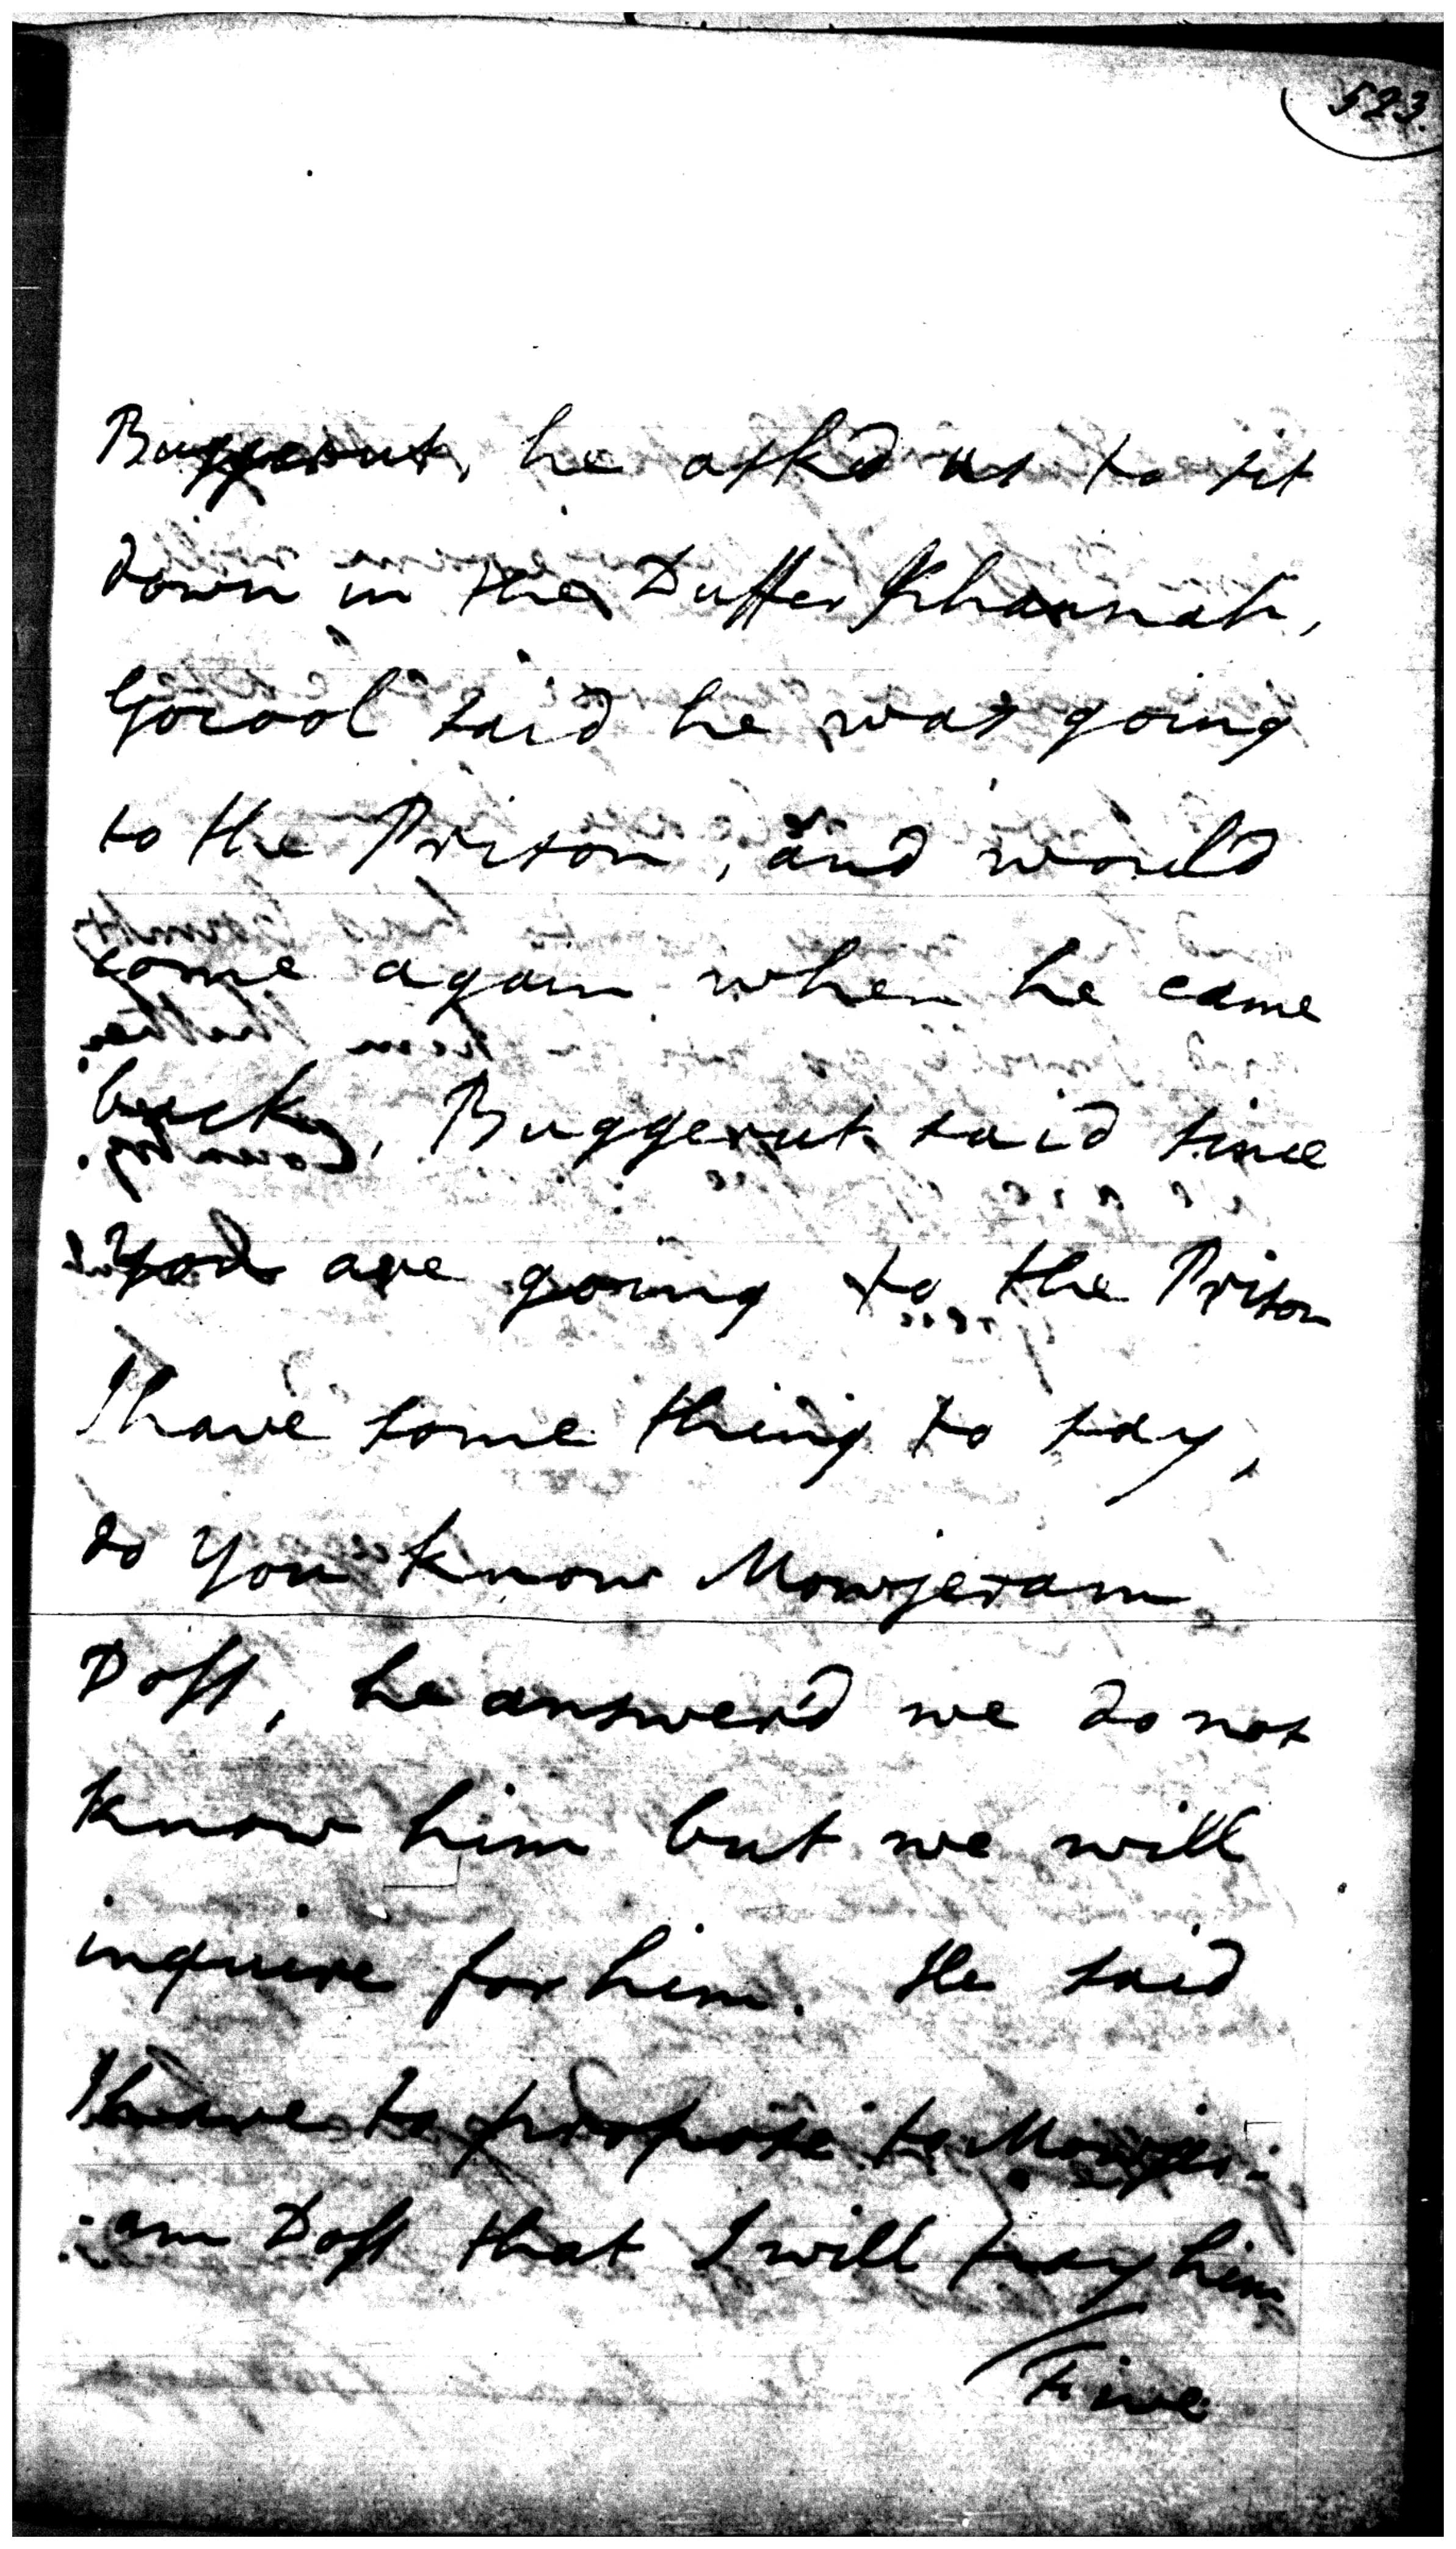 523.
Buggerut, he ask'd us to sit
down in the Duffer Khannah,
Gocool said he was going
to the Prison, and would
come again when he came
back, Buggerut said since
you are going to the Prison
I have some thing to say,
do you know Mowjeram
Doss, he answer'd we do not
know him but we will
inquire for him. He said
I have to propose to Mowjer-
-am Doss that I will pay him
Five